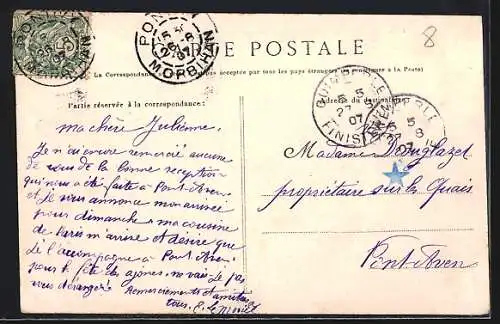 PONTIVY
MORBIHAN
CARTE POSTALE
8
La Correspondance acceptée par tous les pays étrangers à la Poste)
Partie réservée à la correspondance:
Adresse du destinataire
07
FINISTÈRE
ma chère Julienne,
Je n'ai encore remercié aucune
de vous de la bonne réception
qui nous a été faite à Pont-Aven
et je vous annonce mon arrivée
pour dimanche, ma cousine
de Paris m'arrive et désire que
je l'accompagne à Pont-Aven
pour la fête des ajoncs, ne vais-je pas
vous déranger?
Remerciements et amitiés à
tous, E. Le
Madame
propriétaire sur les Quais
Pont-Aven